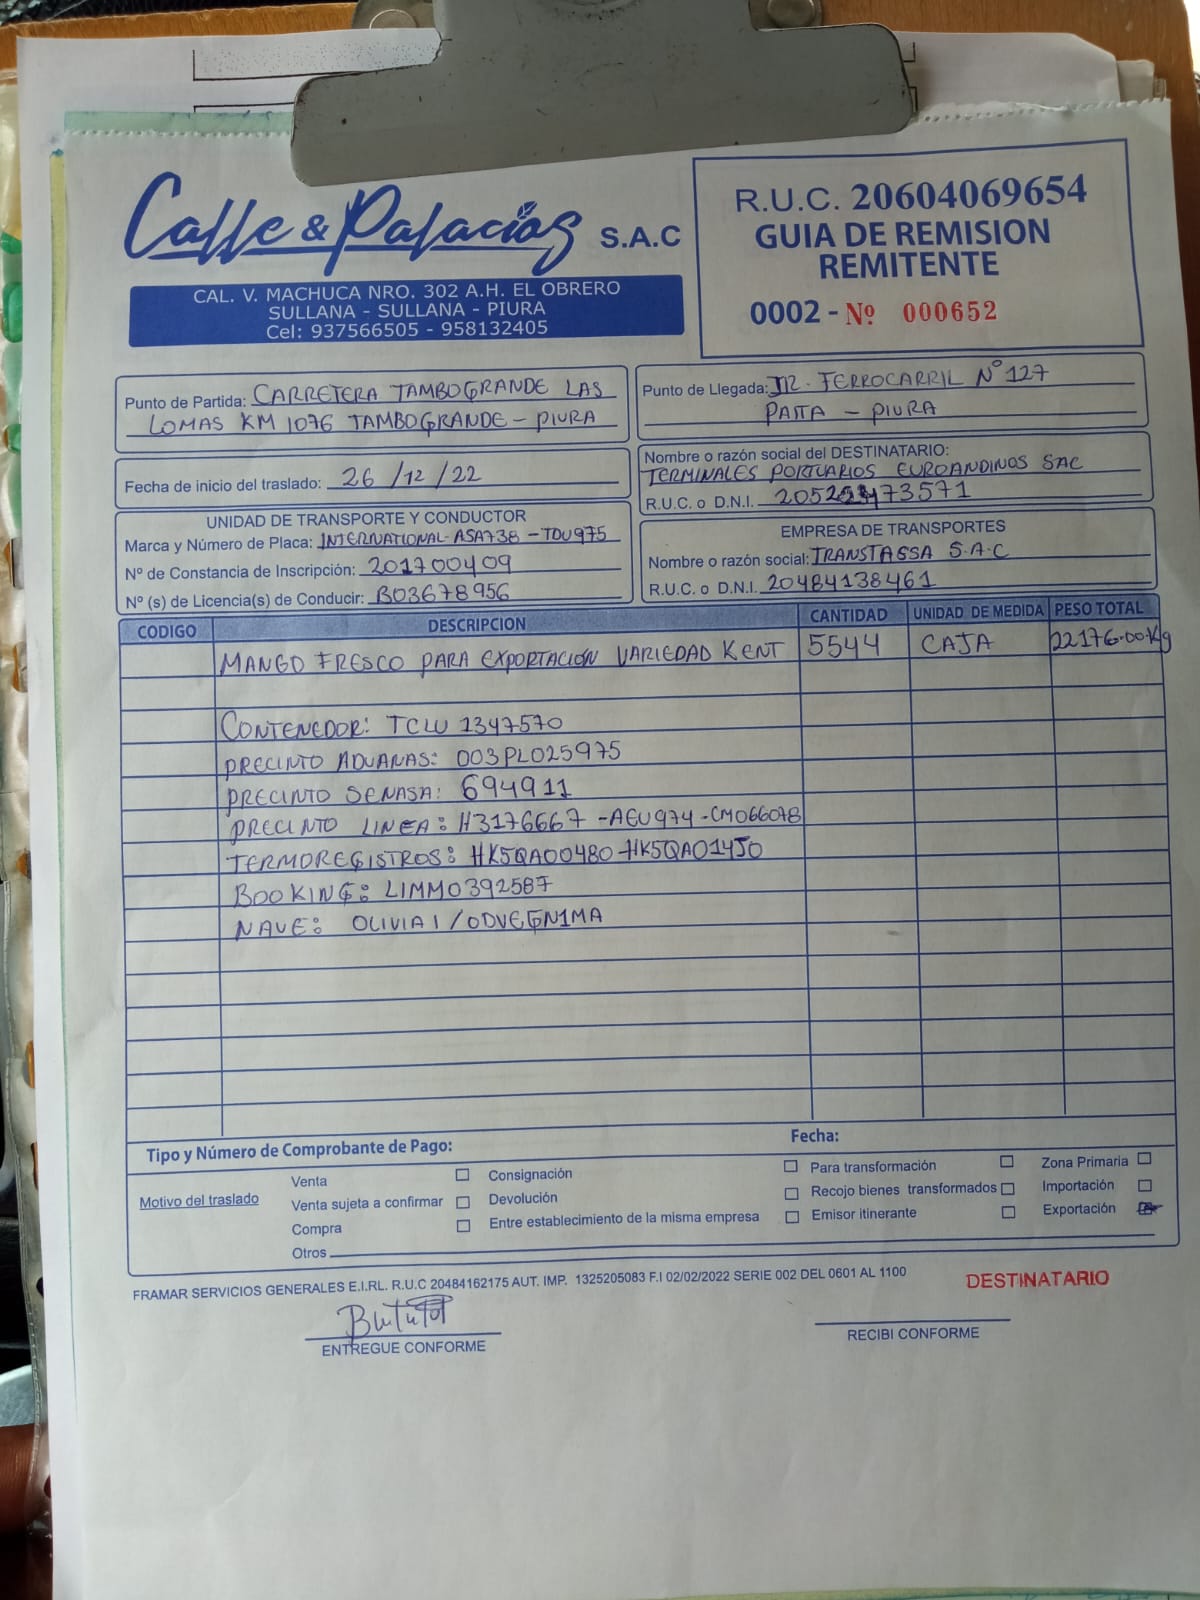 Calle & Palacios S.A.C
CAL. V. MACHUCA NRO. 302 A.H. EL OBRERO
SULLANA - SULLANA - PIURA
Cel: 937566505 - 958132405
R.U.C. 20604069654
GUIA DE REMISION
REMITENTE
0002 - Nº 000652
Punto de Partida: CARRETERA TAMBOGRANDE LAS
LOMAS KM 1076 TAMBOGRANDE - PIURA
Punto de Llegada: JR. FERROCARRIL Nº 127
PAITA - PIURA
Fecha de inicio del traslado: 26/12/22
Nombre o razón social del DESTINATARIO:
TERMINALES PORTUARIOS EUROANDINOS SAC
R.U.C. o D.N.I.
UNIDAD DE TRANSPORTE Y CONDUCTOR
Marca y Número de Placa: INTERNATIONAL-ASA738 - TDU975
Nº de Constancia de Inscripción: 201700409
Nº (s) de Licencia(s) de Conducir: B03678956
EMPRESA DE TRANSPORTES
Nombre o razón social: TRANSTASSA S.A.C
R.U.C. o D.N.I. 20484138461
CODIGO DESCRIPCION CANTIDAD UNIDAD DE MEDIDA PESO TOTAL
MANGO FRESCO PARA EXPORTACIÓN VARIEDAD KENT 5544 CAJA 22176.00Kg
CONTENEDOR: TCLU 1347570
PRECINTO ADUANAS: 003PL025975
PRECINTO SENASA: 694911
PRECINTO LINEA: H3176667 - AEU974 - CM066078
TERMOREGISTROS: HK5QA00480-HK5QA014J0
BOOKING: LIMM0392587
NAVE: OLIVIA I / ODVEGN1MA
Tipo y Número de Comprobante de Pago: Fecha:
Motivo del traslado
Venta
Venta sujeta a confirmar
Compra
Otros
Consignación
Devolución
Entre establecimiento de la misma empresa
Para transformación
Recojo bienes transformados
Emisor itinerante
Zona Primaria
Importación
Exportación
FRAMAR SERVICIOS GENERALES E.I.RL. R.U.C 20484162175 AUT. IMP. 1325205083 F.I 02/02/2022 SERIE 002 DEL 0601 AL 1100
DESTINATARIO
ENTREGUE CONFORME
RECIBI CONFORME